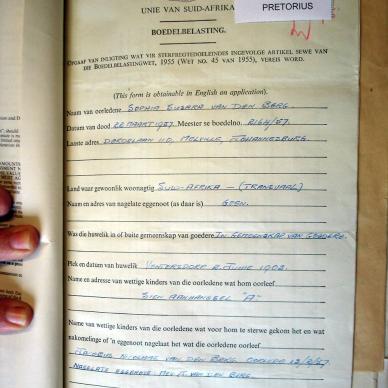 UNIE VAN SUID-AFRIKA
PRETORIUS
BOEDELBELASTING.
OPGAAF VAN INLIGTING WAT VIR STERFREGTEDOELEINDES INGEVOLGE ARTIKEL SEWE VAN
DIE BOEDELBELASTINGWET, 1955 (WET NO. 45 VAN 1955), VEREIS WORD.
(This form is obtainable in English on application).
Naam van oorledene SOPHIA SUSARA VAN DEN BERG
Datum van dood 22 MAART 1957. Meester se boedelno.
Laaste adres MELVILLE, JOHANNESBURG
Land waar gewoonlik woonagtig SUID-AFRIKA — (TRANSVAAL)
Naam en adres van nagelate eggenoot (as daar is) GEEN.
Was die huwelik in of buite gemeenskap van goedere IN GEMEENSKAP VAN GOEDERE.
Plek en datum van huwelik VENTERSDORP JUNIE 1902.
Name en adresse van wettige kinders van die oorledene wat hom oorleef
SIEN AANHANGSEL "A"
Name van wettige kinders van die oorledene wat voor hom te sterwe gekom het en wat
nakomelinge of 'n eggenoot nagelaat het wat die oorledene oorleef
NICOLAAS VAN DEN BERG
NAGELATE EGGENOTE VAN DEN BERG